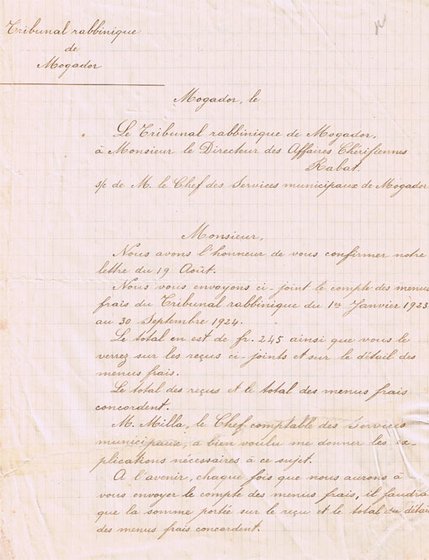 Tribunal rabbinique
de
Mogador
Mogador, le
Le Tribunal rabbinique de Mogador,
à Monsieur le Directeur des Affaires Chérifiennes
Rabat.
s/c de M. le Chef des Services municipaux de Mogador
Monsieur,
Nous avons l'honneur de vous confirmer notre
lettre du 19 Août.
Nous vous envoyons ci-joint le compte des menus
frais du Tribunal rabbinique du 1er Janvier 1923
au 30 Septembre 1924.
Le total en est de fr. 245 ainsi que vous le
verrez sur les reçus ci-joints et sur le détail des
menus frais.
Le total des reçus et le total des menus frais
concordent.
M. Milla, le Chef comptable des Services
municipaux, a bien voulu me donner les ex-
plications nécessaires à ce sujet.
A l'avenir, chaque fois que nous aurons à
vous envoyer le compte des menus frais, il faudra
que la somme portée sur le reçu et le total du détail
des menus frais concordent.